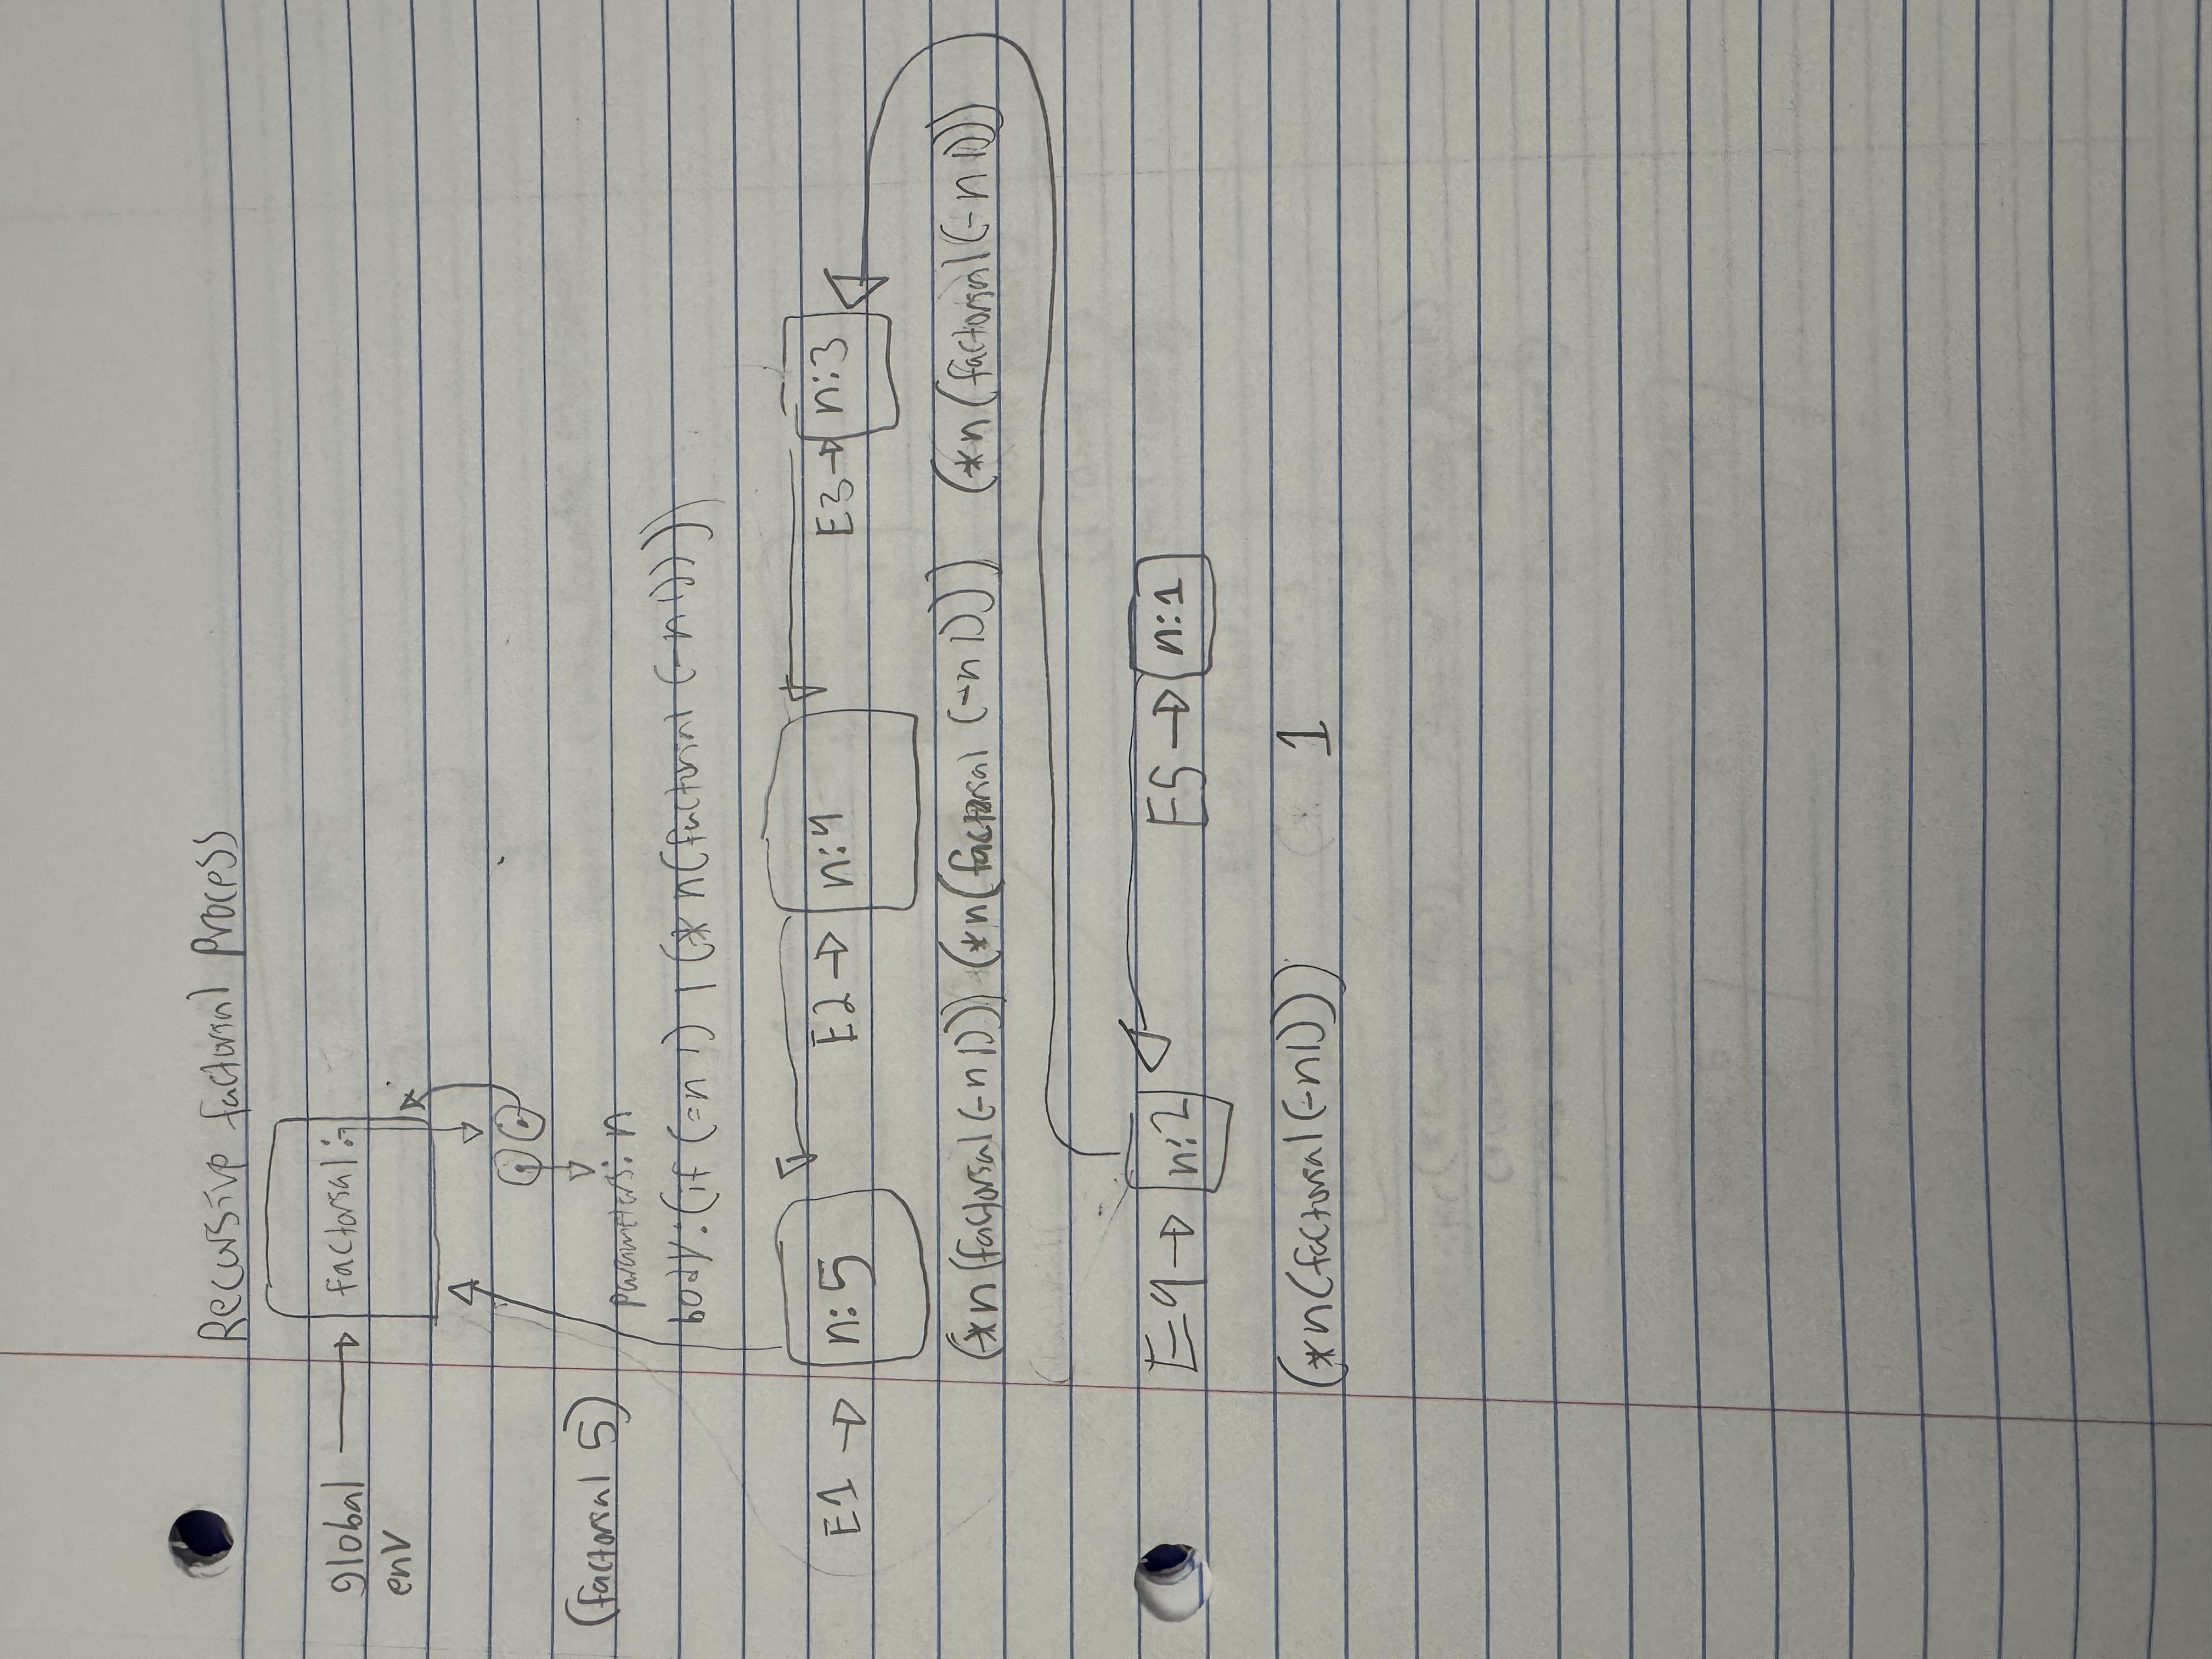 Recursive factorial process
global
env
factorial:
(factorial 5)
parameters: n
body: (if (= n 1) 1 (* n (factorial (- n 1))))
E1 n: 5 E2 n: 4 E3 n: 3
(* n (factorial (- n 1))) (* n (factorial (- n 1))) (* n (factorial (- n 1)))
E4 n: 2 E5 n: 1
(* n (factorial (- n 1))) 1